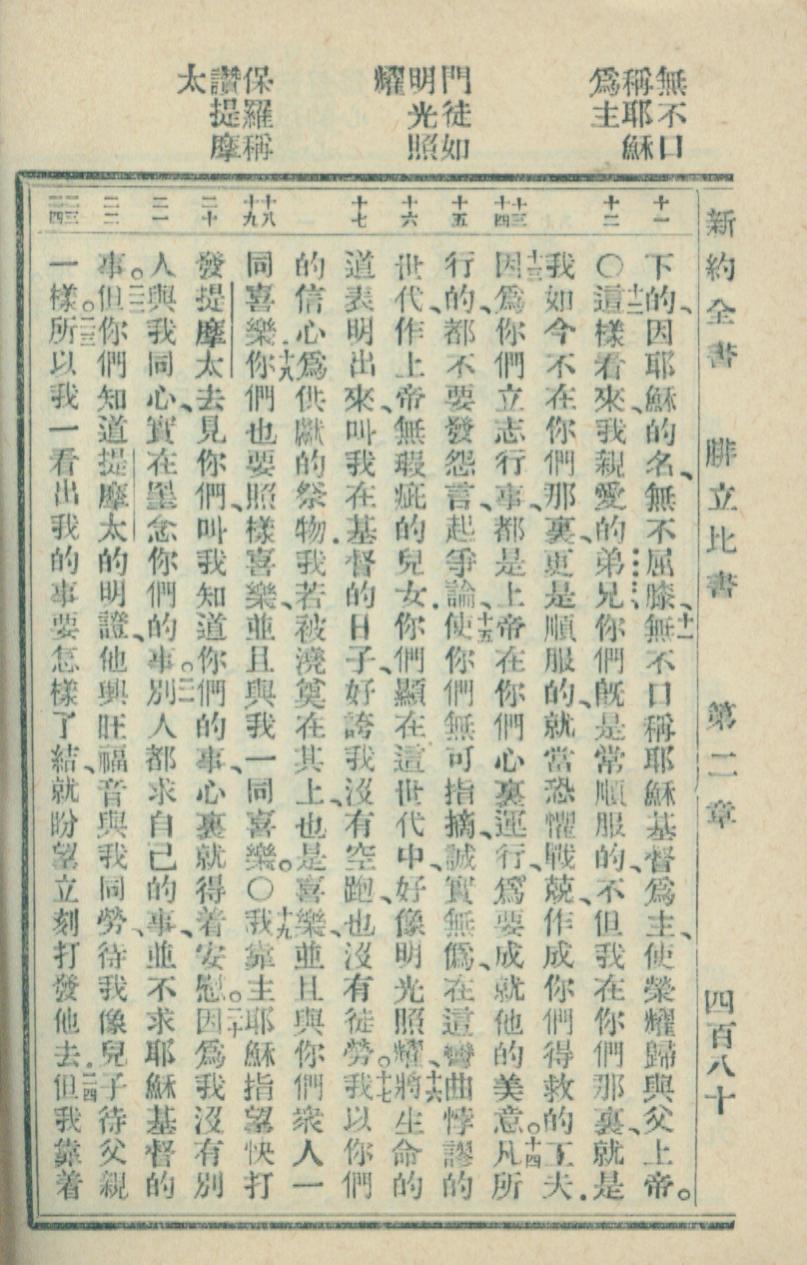 無不口
稱耶穌
爲主
門徒如
明光照
耀
保羅稱
讚提摩
太
新約全書 腓立比書 第二章 四百八十
十一
十二
十三
十四
十五
十六
十七
十八
十九
二十
二一
二二
二三
二四
下的、因耶穌的名、無不屈膝、十一無不口稱耶穌基督爲主、使榮耀歸與父上帝。
〇十二這樣看來、我親愛的弟兄、你們旣是常順服的、不但我在你們那裏、就是
我如今不在你們那裏、更是順服的、就當恐懼戰兢、作成你們得救的工夫.
十三因爲你們立志行事、都是上帝在你們心裏運行、爲要成就他的美意。十四凡所
行的、都不要發怨言、起爭論、十五使你們無可指摘、誠實無僞、在這彎曲悖謬的
世代、作上帝無瑕疵的兒女.你們顯在這世代中、好像明光照耀、十六將生命的
道表明出來、叫我在基督的日子、好誇我沒有空跑、也沒有徒勞。十七我以你們
的信心爲供獻的祭物.我若被澆奠在其上、也是喜樂、並且與你們衆人一
同喜樂.十八你們也要照樣喜樂、並且與我一同喜樂。〇十九我靠主耶穌指望快打
發提摩太去見你們、叫我知道你們的事、心裏就得着安慰。二十因爲我沒有別
人與我同心、實在罣念你們的事。二一別人都求自己的事、並不求耶穌基督的
事。二二但你們知道提摩太的明證、他興旺福音與我同勞、待我像兒子待父親
一樣。二三所以我一看出我的事要怎樣了結、就盼望立刻打發他去.二四但我靠着